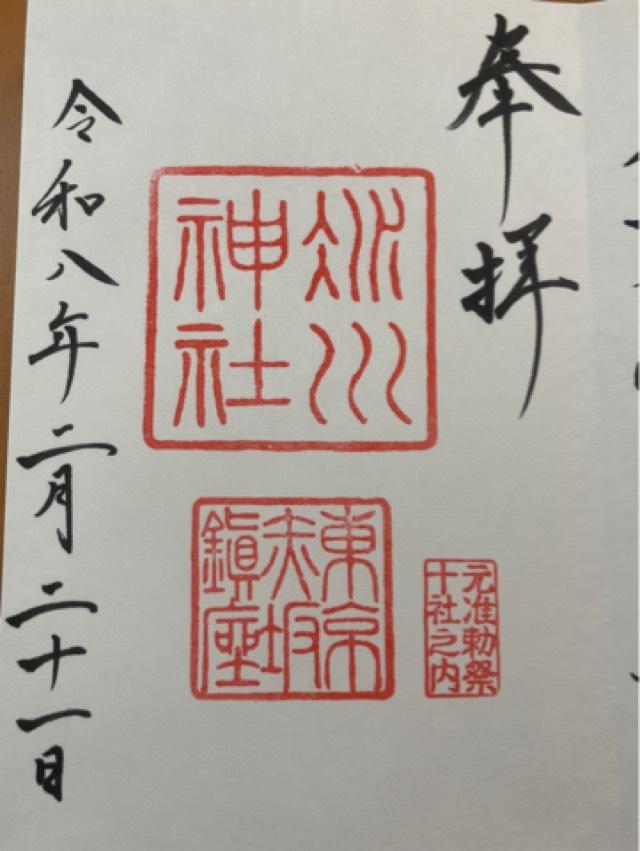 奉拝
氷川
神社
東京
赤坂
鎮座
元准勅祭
十社之内
令和八年二月二十一日